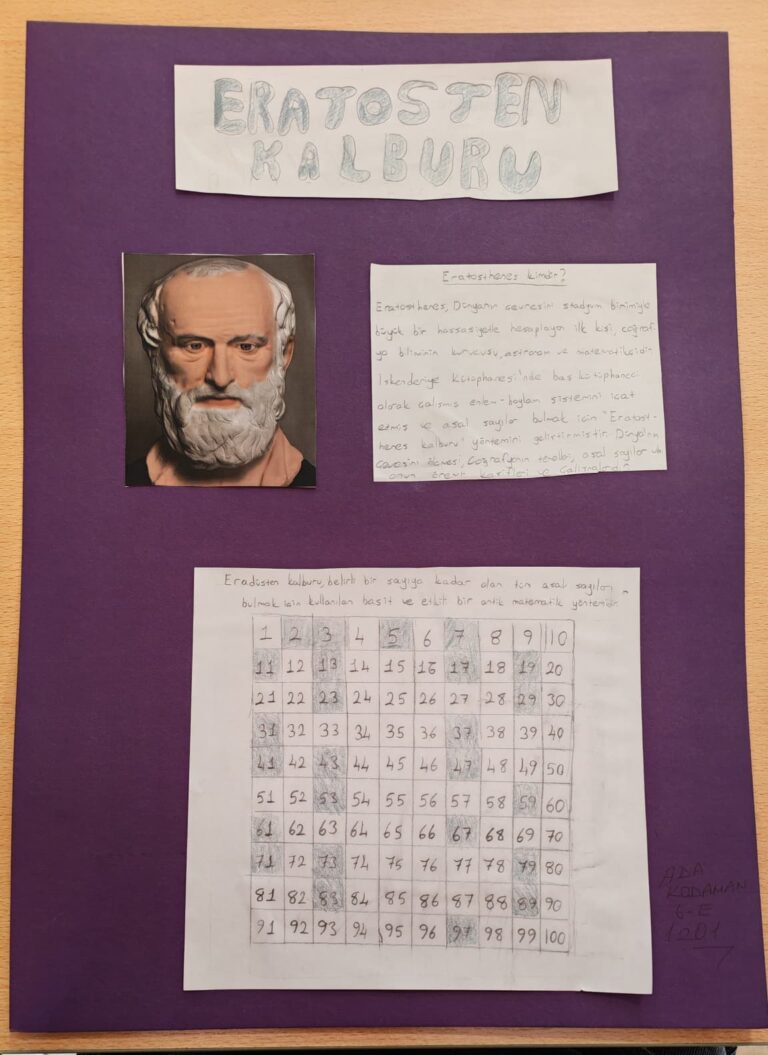 ERATOSTEN
KALBURU
Eratosthenes kimdir?
Eratosthenes, Dünyanın çevresini stadyum birimiyle
büyük bir hassasiyetle hesaplayan ilk kişi, coğraf
ya biliminin kurucusu, astronom ve matematikçidir.
İskenderiye Kütüphanesi'nde baş kütüphaneci
olarak çalışmış enlem-boylam sistemini icat
etmiş ve asal sayılar bulmak için "Eratost-
henes kalburu" yöntemini geliştirmiştir. Dünya'nın
çevresini ölçmesi, Coğrafyanın temelleri, asal sayılar
onun önemli ve çalışmalarıdır
Eradüsten kalburu, belirli bir sayıya kadar olan tüm asal sayıları
bulmak için kullanılan basit ve etkit bir antik matematik yöntemidir
1 2 3 4 5 6 7 8 9 10
11 12 13 14 15 16 17 18 19 20
21 22 23 24 25 26 27 28 29 30
31 32 33 34 35 36 37 38 39 40
41 42 43 44 45 46 47 48 49 50
51 52 53 54 55 56 57 58 59 60
61 62 63 64 65 66 67 68 69 70
71 72 73 74 75 76 77 78 79 80
81 82 83 84 85 86 87 88 89 90
91 92 93 94 95 96 97 98 99 100
ADA
KODAMAN
6-E